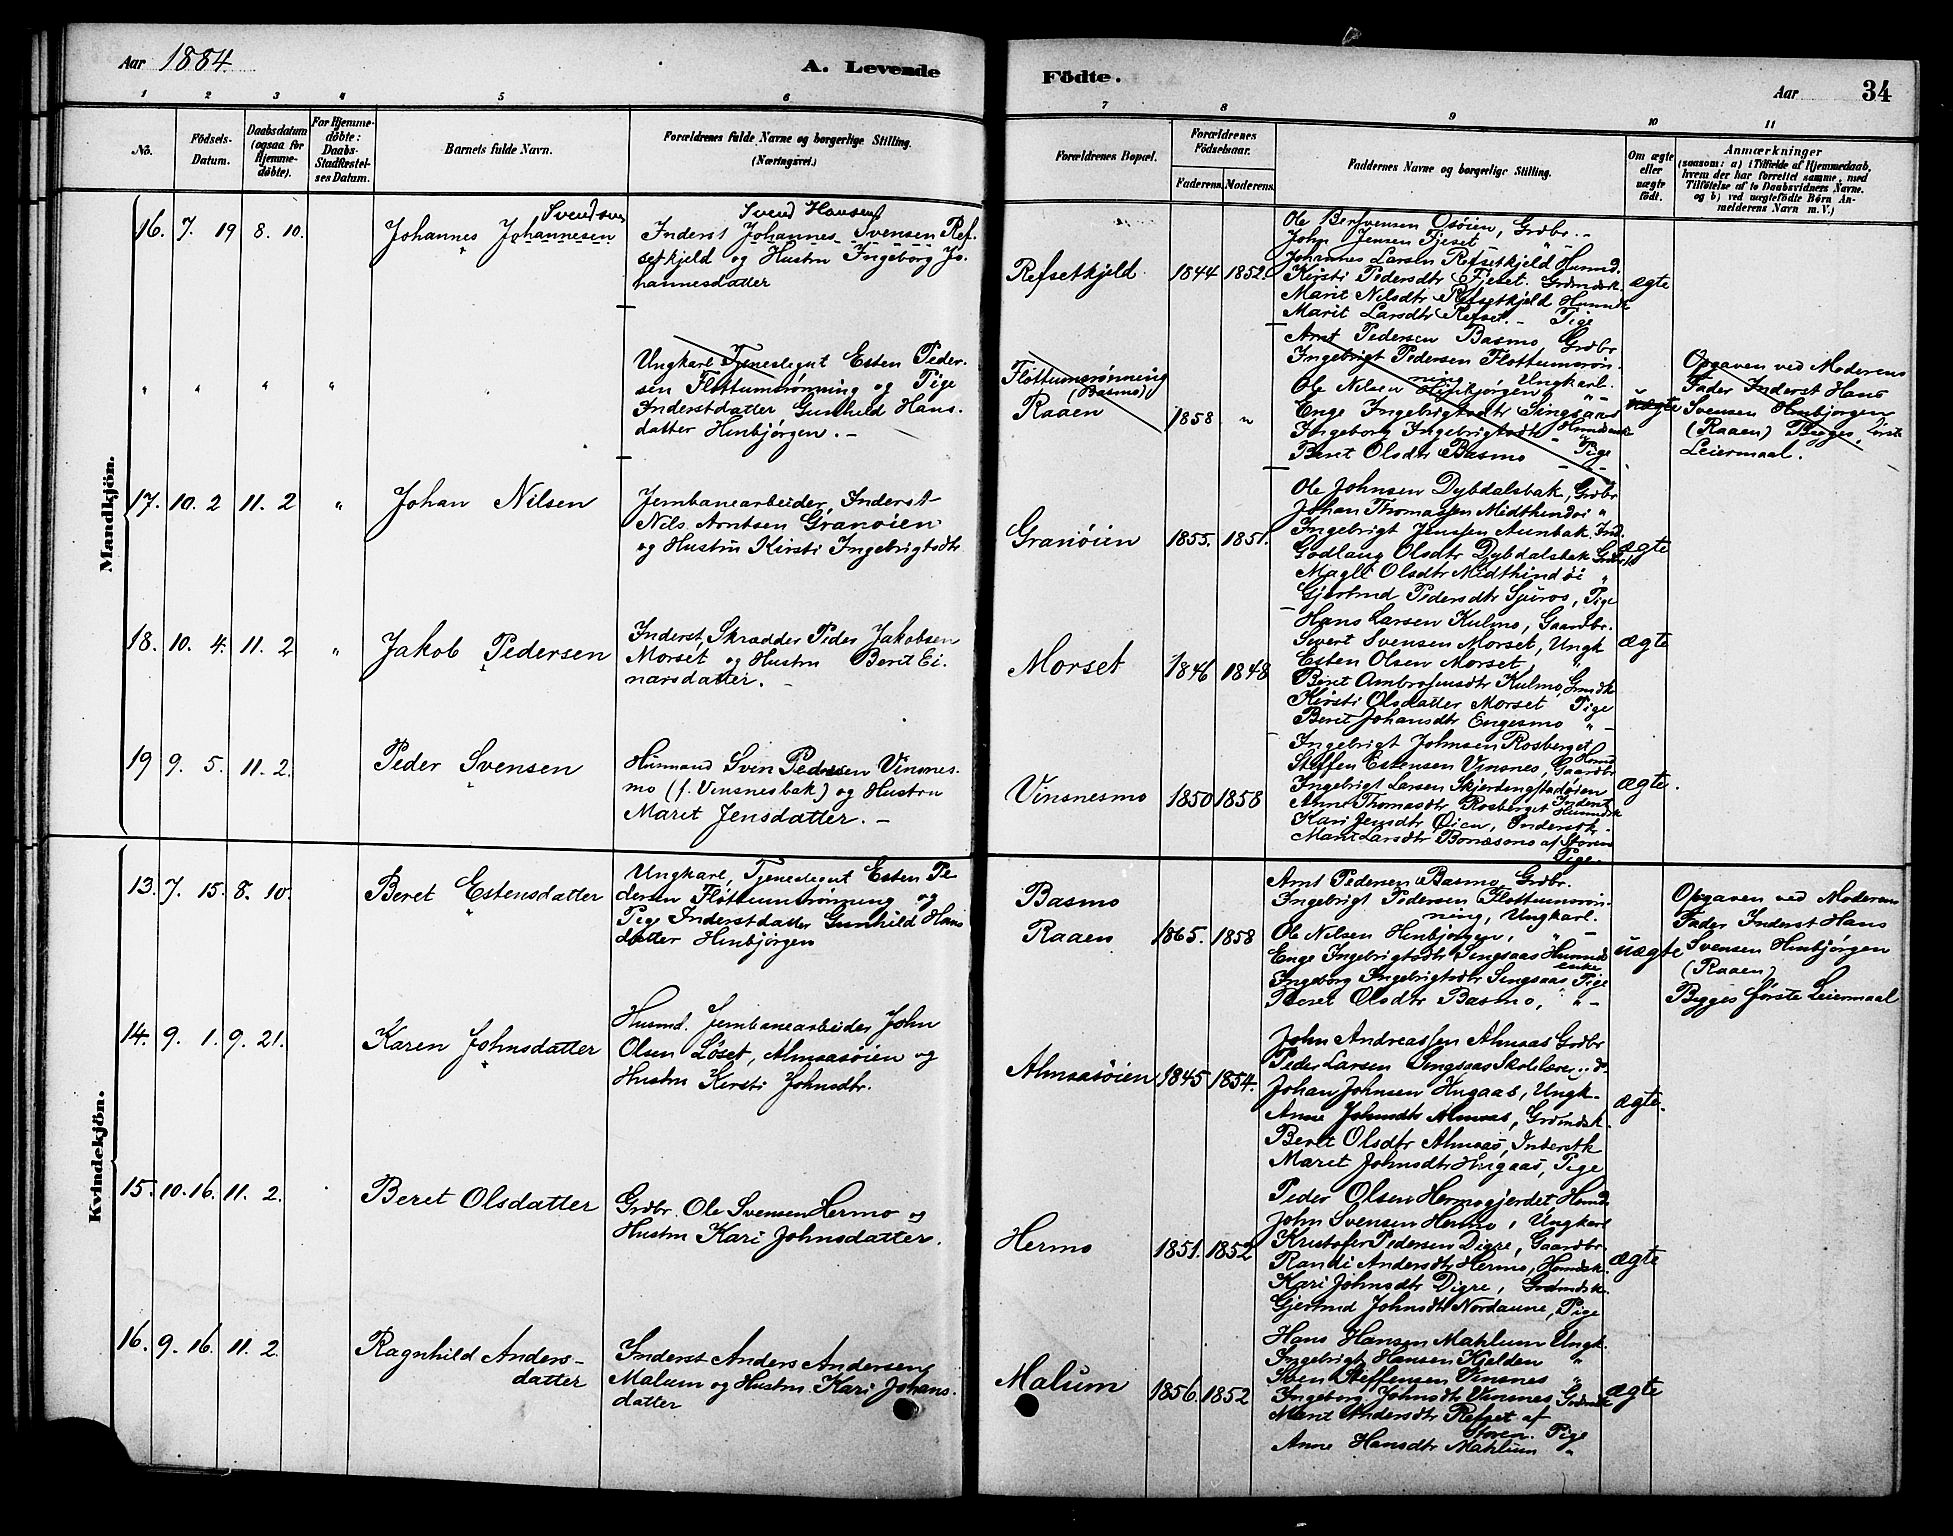 Aar 1884.
A. Levende
Födte.
Aar
34
1 2 3 4 5 6 7 8 9 10 11
No.
Födsels-
Datum.
Daabsdatum
(ogsaa for
Hjemme-
döbte).
For Hjemme-
döbte:
Daabs-
Stadfæstel-
ses Datum.
Barnets fulde Navn.
Forældrenes fulde Navne og borgerlige Stilling.
(Næringsvei.)
Forældrenes Bopæl.
Forældrenes
Födselsaar.
Faderens. Moderens.
Faddernes Navne og borgerlige Stilling.
Om ægte
eller
uægte
födt.
Anmærkninger
(saasom: a) i Tilfælde af Hjemmedaab,
hvem der har forrettet samme, med
Tilföielse af to Daabsvidners Navne.
og b) ved uægtefödte Börn An-
melderens Navn m. V.)
Mandkjön.
16. 7. 19 8. 10.
Svendsen
Johannes Johannesen
Svend Hansen
Inderst Johannes Svensen Ref-
setkjeld og Hustru Ingeborg Jo-
hannesdatter
Refsetkjeld 1844 1852
Ole Bersvensen Osøien, Grdbr.
John Jensen Fjeset
Johannes Larsen Refsetkjeld Husmd.
Kirsti Pedersdtr Fjeset. Grdmdsk.
Marit Nilsdtr Refsetkjeld Husmdk
Marit Larsdtr Refset. - Tige
ægte
" " " "
Ungkarl Tjenestegut Esten Peder-
sen Flottumsrønning og Pige
Inderstdatter Gunhild Hans-
datter Hinbjørgen. -
Flottumsrønning
(Basmo)
Raaen 1858 "
Arnt Pedersen Basmo, Grdbr
Ingebrigt Pedersen Flottumsrøn-
ning, Ungkarl.
Ole Nilsen Hinbjørgen, "
Enge Ingebrigtsdtr Singsaas
Ingeborg Ingebrigtsdtr - Husmdsenke
Beret Olsdtr Basmo - Pige
uægte
Opgaven ved Moderens
Fader Inderst Hans
Svensen Hinbjörgen
(Raaen) Begges første
Leiermaal.
17. 10. 2 11. 2 "
Johan Nilsen
Jernbanearbeider, Inderst
Nils Arntsen Granøien
og Hustru Kirsti Ingebrigtsdtr
Granøien 1855. 1851.
Ole Johnsen Dybdalsbak, Grdbr
Johan Thomassen Midthindøi "
Ingebrigt Jenssen Aunbak Ind.
Godlaug Olsdtr Dybdalsbak
Magli Olsdtr Midthindøi "
Gjertrud Pedersdtr Spiros, Pige
ægte
18. 10. 4. 11. 2 "
Jakob Pedersen
Inderst, Skrædder Peder Jakobsen
Morset og Hustru Berit Ei-
narsdatter. -
Morset 1846 1848
Hans Larsen Kulmo, Gaardbr.
Sivert Svensen Morset, Ungk
Esten Olsen Morset, "
Beret Ambrosiusdtr Kulmo, Grmdk
Kirsti Olsdatter Morset Pige
Berit Johansdtr Engesmo "
ægte
19 9. 5. 11. 2.
Peder Svensen
Husmand Sven Pedersen Vinsnes-
mo (f. Vinsnesbak) og Hustru
Marit Jensdatter. -
Vinsnesmo 1850 1858
Ingebrigt Johnsen Rosberget Husmd
Steffen Estensen Vinsnes, Gaardbr
Ingebrigt Larsen Skjerdingstadøien Inderst
Anne Thomasdtr Rosberget Husmdsk
Kari Jensdtr Øien, Inderstk -
Marit Larsdtr Bonæsmo af Støren
Pige
ægte.
Kvindekjön.
13. 7. 15. 8. 10.
Beret Estensdatter
Ungkarl, Tjenestegut Esten Pe
dersen Flöttumsrønning og
Pige Inderstdatter Gunhild Hans
datter Hinbjørgen
Basmo
Raaen 1865. 1858
Arnt Pedersen Basmo, Grdbr.
Ingebrigt Pedersen Flottumsrøn-
ning, Ungkarl.
Ole Nilsen Hinbjørgen, "
Enge Ingebrigtsdtr Singsaas Husmds
enke
Ingeborg Ingebrigtsdtr Singsaas Pige
Beret Olsdtr Basmo, " -
uægte
Opgaven ved Moderens
Fader Inderst Hans
Svensen Hinbjørgen
(Raaen)
Begges første Leiermaal
14. 9. 1. 9. 21.
Karen Johnsdatter
Husmd. Jernbanearbeider John
Olsen Løset, Almaasøien og
Hustru Kirsti Johnsdtr.
Almaasøien 1845 1854.
John Andreassen Almaas Grdbr
Peder Larsen Singsaas
Johan Johnsen Hugaas, Ungk-
Anne Johnsdtr Almaas, Grdmdsk.
Beret Olsdtr Almaas, Inderstk
Maret Johnsdtr Hugaas, Pige
ægte.
15. 10. 16. 11. 2.
Beret Olsdatter
Grdbr. Ole Svensen Hermo og
Hustru Kari Johnsdatter.
Hermo 1851. 1852
Peder Olsen Hermogjerdet Husmd.
John Svensen Hermo, Ungkarl
Kristofer Pedersen Digre, Gaardbr.
Randi Andersdtr Hermo,
Kari Johnsdtr Digre, Grdmdsk.
Gjertrud Johnsdtr Nordaune, Pige
ægte
16. 9. 16. 11. 2.
Ragnhild Anders-
datter
Inderst Anders Andersen
Malum og Hustru Kari Johans-
datter
Malum 1856. 1852
Hans Hansen Mahlum Ungk.
Ingebrigt Hansen Kjelden "
Sven Steffensen Vinsnes "
Ingeborg Johnsdtr Vinsnes
Marit Andersdtr Refset af
Støren. Pige
Anne Hansdtr Mahlum "
ægte